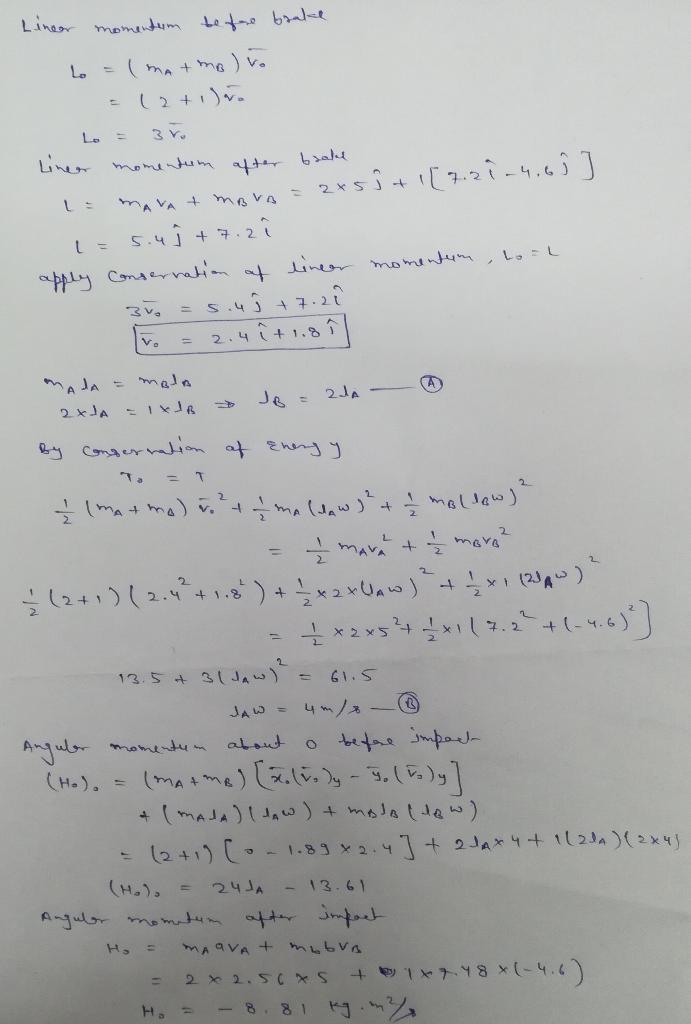 Linear momentum before brake
L₀ = (mA + mB) v̄₀
= (2 + 1) v̄₀
L₀ = 3 v̄₀
Linear momentum after brake
L = mAvA + mBvB = 2×5ĵ + 1[7.2î - 4.6ĵ]
L = 5.4ĵ + 7.2î
apply conservation of linear momentum, L₀ = L
3v̄₀ = 5.4ĵ + 7.2î
v̄₀ = 2.4î + 1.8ĵ
mAlA = mBlB
2×lA = 1×lB ⇒ lB = 2lA — Ⓐ
By conservation of Energy
T₀ = T
½ (mA + mB) v̄₀² + ½ mA (lAω)² + ½ mB (lBω)²
= ½ mAvA² + ½ mBvB²
½ (2+1)(2.4² + 1.8²) + ½ × 2 × (lAω)² + ½ × 1 (2lAω)²
= ½ × 2 × 5² + ½ × 1 (7.2² + (-4.6)²]
13.5 + 3(lAω)² = 61.5
lAω = 4 m/s — Ⓑ
Angular momentum about o before impact
(H₀)₀ = (mA + mB) [x̄₀(v̄₀)y - ȳ₀(v̄₀)y]
+ (mAlA)(lAω) + mBlB(lBω)
= (2+1) [0 - 1.89 × 2.4] + 2lA × 4 + 1(2lA)(2×4)
(H₀)₀ = 24lA - 13.61
Angular momentum after impact
H₀ = mAavA + mbbvB
= 2 × 2.56 × 5 + 1 × 7.48 × (-4.6)
H₀ = - 8.81 kg.m²/s